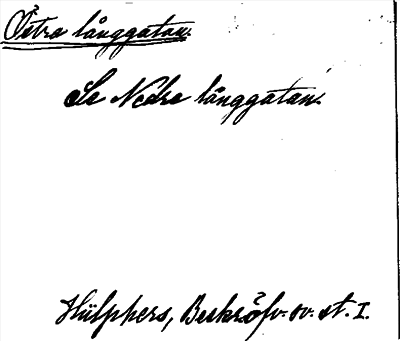 Östra långgatan.
Se Nedre långgatan.
Hülphers, Beskr. öfv. sv. st. I.